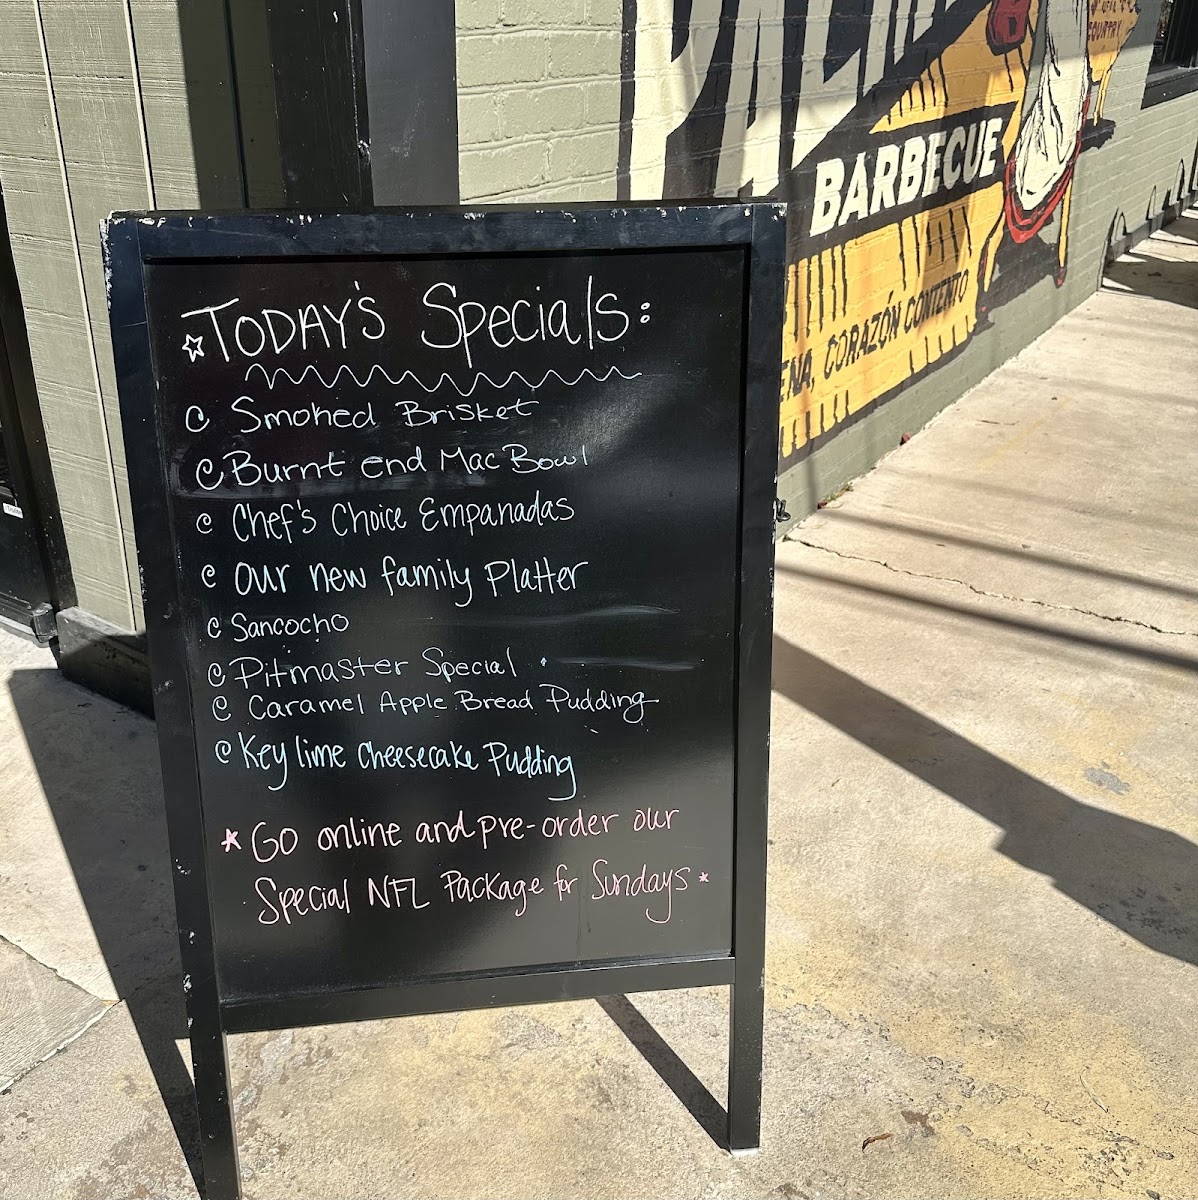 TODAY'S Specials:
Smoked Brisket
Burnt end Mac Bowl
Chef's Choice Empanadas
Our new family Platter
Sancocho
Pitmaster Special
Caramel Apple Bread Pudding
Key lime Cheesecake Pudding
* Go online and pre-order our
Special NFL Package for Sundays *
BARBECUE
CORAZÓN CONTENTO
COUNTRY